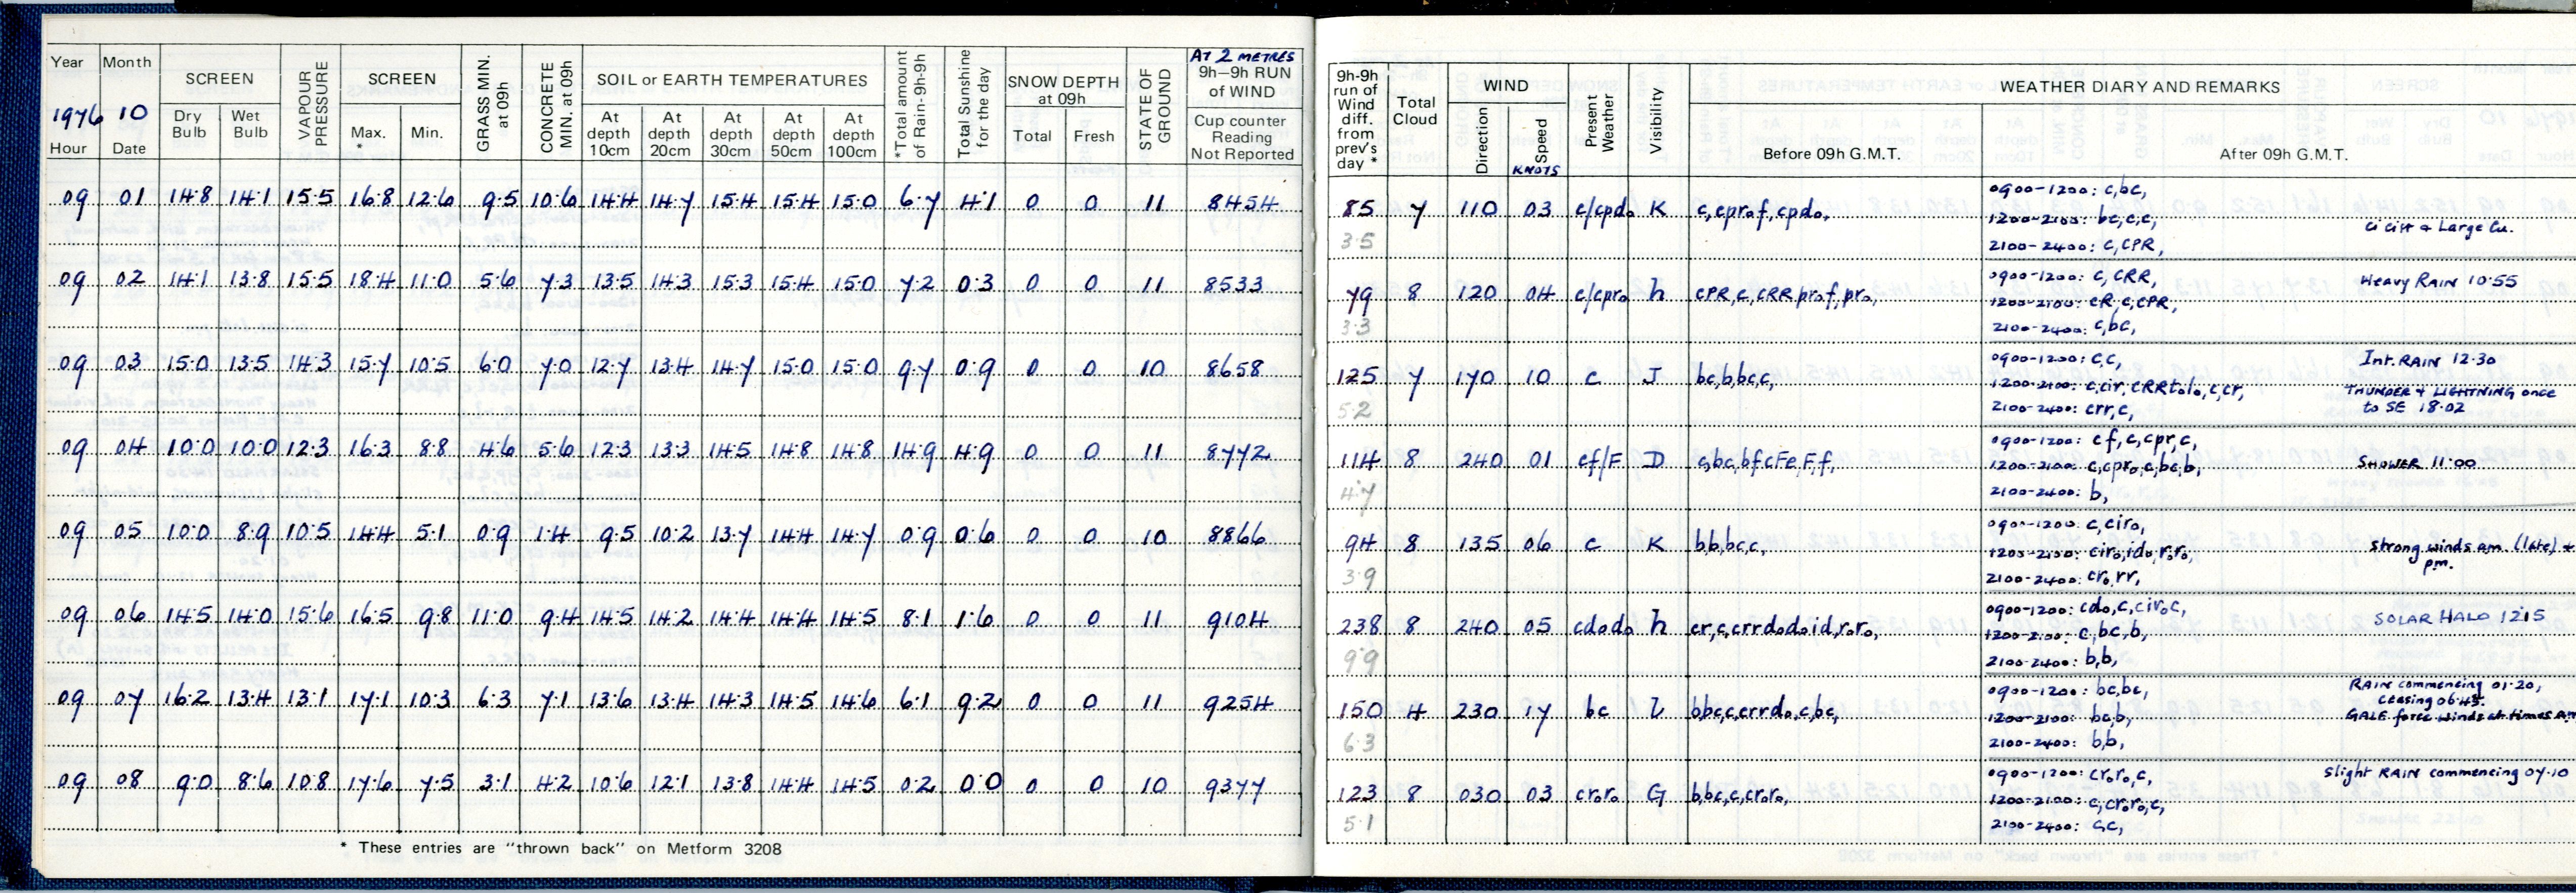 Year Month SCREEN VAPOUR PRESSURE SCREEN GRASS MIN. at 09h CONCRETE MIN. at 09h SOIL or EARTH TEMPERATURES *Total amount of Rain-9h-9h Total Sunshine for the day SNOW DEPTH at 09h STATE OF GROUND AT 2 METRES 9h—9h RUN of WIND
1976 10 Dry Bulb Wet Bulb Max. * Min. At depth 10cm At depth 20cm At depth 30cm At depth 50cm At depth 100cm Total Fresh Cup counter Reading Not Reported
Hour Date
09 01 14·8 14·1 15·5 16·8 12·6 9·5 10·6 14·4 14·7 15·4 15·4 15·0 6·7 4·1 0 0 11 8454
09 02 14·1 13·8 15·5 18·4 11·0 5·6 7·3 13·5 14·3 15·3 15·4 15·0 7·2 0·3 0 0 11 8533
09 03 15·0 13·5 14·3 15·7 10·5 6·0 7·0 12·7 13·4 14·7 15·0 15·0 9·7 0·9 0 0 10 8658
09 04 10·0 10·0 12·3 16·3 8·8 4·6 5·6 12·3 13·3 14·5 14·8 14·8 14·9 4·9 0 0 11 8772
09 05 10·0 8·9 10·5 14·4 5·1 0·9 1·4 9·5 10·2 13·7 14·4 14·7 0·9 0·6 0 0 10 8866
09 06 14·5 14·0 15·6 16·5 9·8 11·0 9·4 14·5 14·2 14·4 14·4 14·5 8·1 1·6 0 0 11 9104
09 07 16·2 13·4 13·1 17·1 10·3 6·3 7·1 13·6 13·4 14·3 14·5 14·6 6·1 9·2 0 0 11 9254
09 08 9·0 8·6 10·8 17·6 7·5 3·1 4·2 10·6 12·1 13·8 14·4 14·5 0·2 0·0 0 0 10 9377
* These entries are "thrown back" on Metform 3208
9h-9h run of Wind diff. from prev's day * Total Cloud WIND Present Weather Visibility WEATHER DIARY AND REMARKS
Direction Speed KNOTS Before 09h G.M.T. After 09h G.M.T.
85 7 110 03 c/cpdo K c,cprof,cpdo, 0900-1200: c,bc,
1200-2100: bc,c,c, Ci Cist & Large Cu.
3·5 2100-2400: c,CPR,
79 8 120 04 c/cpro h cPR,c,cRRprof,pro, 0900-1200: c,CRR, Heavy RAIN 10·55
1200-2100: cR,c,CPR,
3·3 2100-2400: c,bc,
125 7 170 10 c J bc,b,bc,c, 0900-1200: c,c, Int. RAIN 12·30
1200-2100: c,cir,cRRtolo,c,cr, THUNDER & LIGHTNING once
5·2 2100-2400: crr,c, to SE 18·02
114 8 240 01 cf/F D c,bc,bfcFe,F,f, 0900-1200: cf,c,cpr,c,
1200-2100: c,cpro,c,bc,b, SHOWER 11·00
4·7 2100-2400: b,
94 8 135 06 c K b,b,bc,c, 0900-1200: c,ciro,
1200-2100: ciro,ido,roro, Strong winds am. (late) &
3·9 2100-2400: cro,rr, pm.
238 8 240 05 cdodo h cr,c,crrdodoid,roro, 0900-1200: cdo,c,ciroc, SOLAR HALO 12·15
1200-2100: c,bc,b,
9·9 2100-2400: b,b,
150 4 230 17 bc l bbc,c,crrdo,c,bc, 0900-1200: bc,bc, RAIN commencing 01·20,
ceasing 06·45.
1200-2100: bc,b, GALE force winds at times am
6·3 2100-2400: b,b,
123 8 030 03 croro G b,bc,c,croro, 0900-1200: croro,c, Slight RAIN commencing 07·10
1200-2100: c,croro,c,
5·1 2100-2400: c,c,